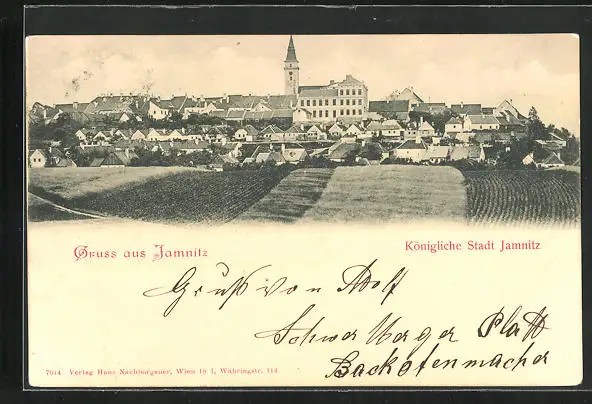 Gruss aus Jamnitz
Königliche Stadt Jamnitz
Gruß von Adolf
Schwer
Backofenmacher
7014 Verlag Hans Nachbargauer, Wien 18/1, Währingstr. 114